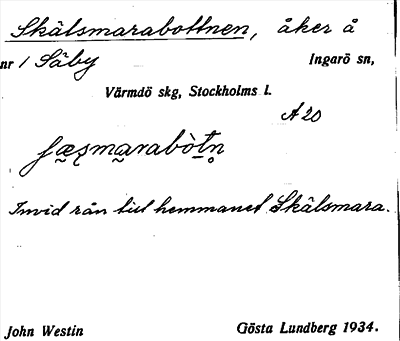 Skälsmarabottnen, åker å
nr 1 Säby Ingarö sn,
Värmdö skg, Stockholms l.
A 20
ʃæʂmarabòtn̥
Invid rån till hemmanet Skälsmara.
John Westin Gösta Lundberg 1934.